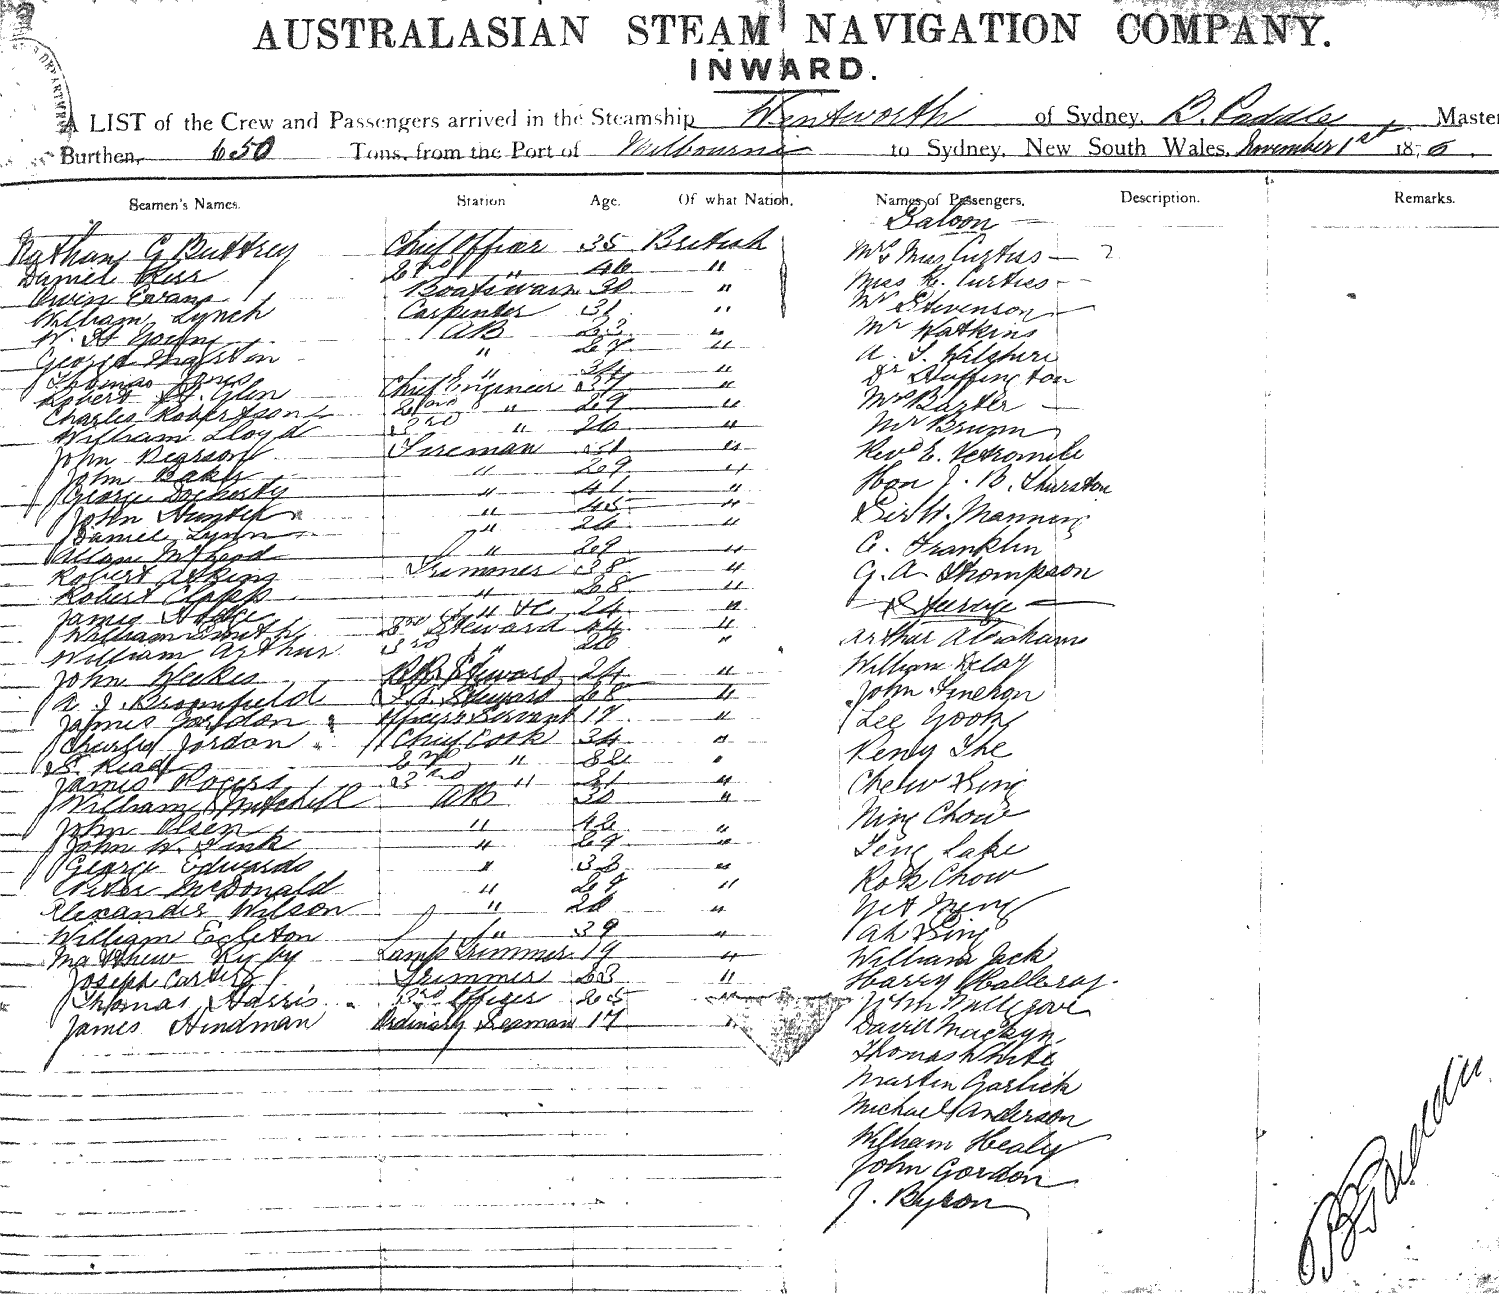 AUSTRALASIAN STEAM NAVIGATION COMPANY.
INWARD.
A LIST of the Crew and Passengers arrived in the Steamship Wentworth of Sydney, B. Paddle Master
Burthen, 650 Tons, from the Port of Melbourne to Sydney, New South Wales, November 1st 1876.
Seamen's Names. Station Age. Of what Nation. Names of Passengers. Description. Remarks.
Saloon
Nathan G Buttrey Chief Officer 35 British
Daniel Kerr 2nd " 46 "
Owin Evans Boatswain 30 "
William Lynch Carpenter 31 "
W. H Young AB 23 "
George Marston " 27 "
Thomas Jones " 34 "
Robert Glen Chief Engineer 37 "
Charles Robertson 2nd " 29 "
William Lloyd 3rd " 26 "
John Pearson Fireman 31 "
John Baker " 29 "
George Docherty " 41 "
John Hunter " 45 "
Daniel Lynn " 24 "
Allan McLeod " 29 "
Robert Atkins Trimmer 38 "
Robert Clapp " 28 "
James " 24 "
William Smith 2nd Steward 44 "
William Arthur 3rd " 20 "
John Weekes Steward 24 "
A J Bromfield Steward 28 "
James Gordon Officers Servant 17 "
Charles Jordan Chief Cook 34 "
S. Read 2nd " "
James Rogers 3rd " 21 "
William Mitchell AB 30 "
John Olsen " 42 "
John W. Fink " 29 "
George Edwards " 33 "
Peter McDonald " 29 "
Alexander Wilson " 20 "
William Egleton " 39 "
Matthew Rigby Lamp Trimmer 19 "
Joseph Carter Trimmer 23 "
Thomas Harris 3rd Officer 25 "
James Hindman Ordinary Seaman 17 "
Mr & Mrs Curtiss
Miss H. Curtiss
Mr Stevenson
Mr Watkins
A. T. Wilshire
Dr Huffington
Mrs Baxter
Mr Brunn
Revd E.
Hon J. B. Thurston
Sir W. Manning
C. Franklin
G. A. Thompson
Steerage
Arthur Abrahams
William Delay
John Finehon
Lee Yook
Keny The
Chew Sing
Ning Chow
Teng Lake
Kok Chow
Yet Meng
Ah Sing
William Jack
Harry Halloray.
David Mackyn
Thomas White
Martin Garlick
Michael Anderson
William Healy
John Gordon
J. Byron